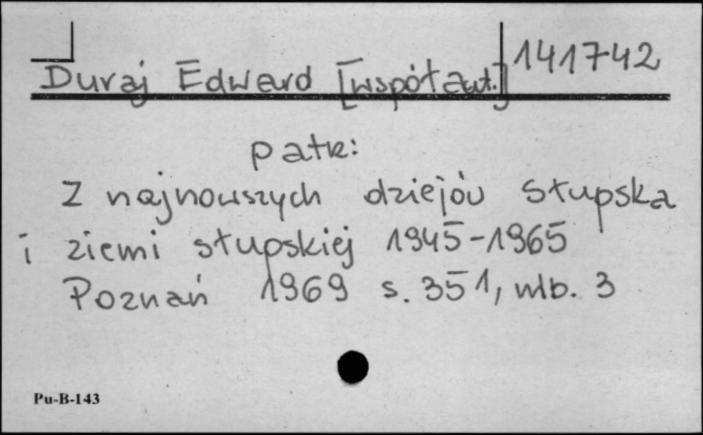 Duraj Edward [współaut.] 141742
patrz:
Z najnowszych dziejów Słupska
i ziemi słupskiej 1945-1965
Poznań 1969 s. 351, nlb. 3
Pu-B-143